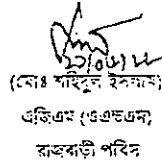 (মোঃ শহিদুল ইসলাম)
এজিএম (ওএন্ডএম)
রাজবাড়ী পবিস